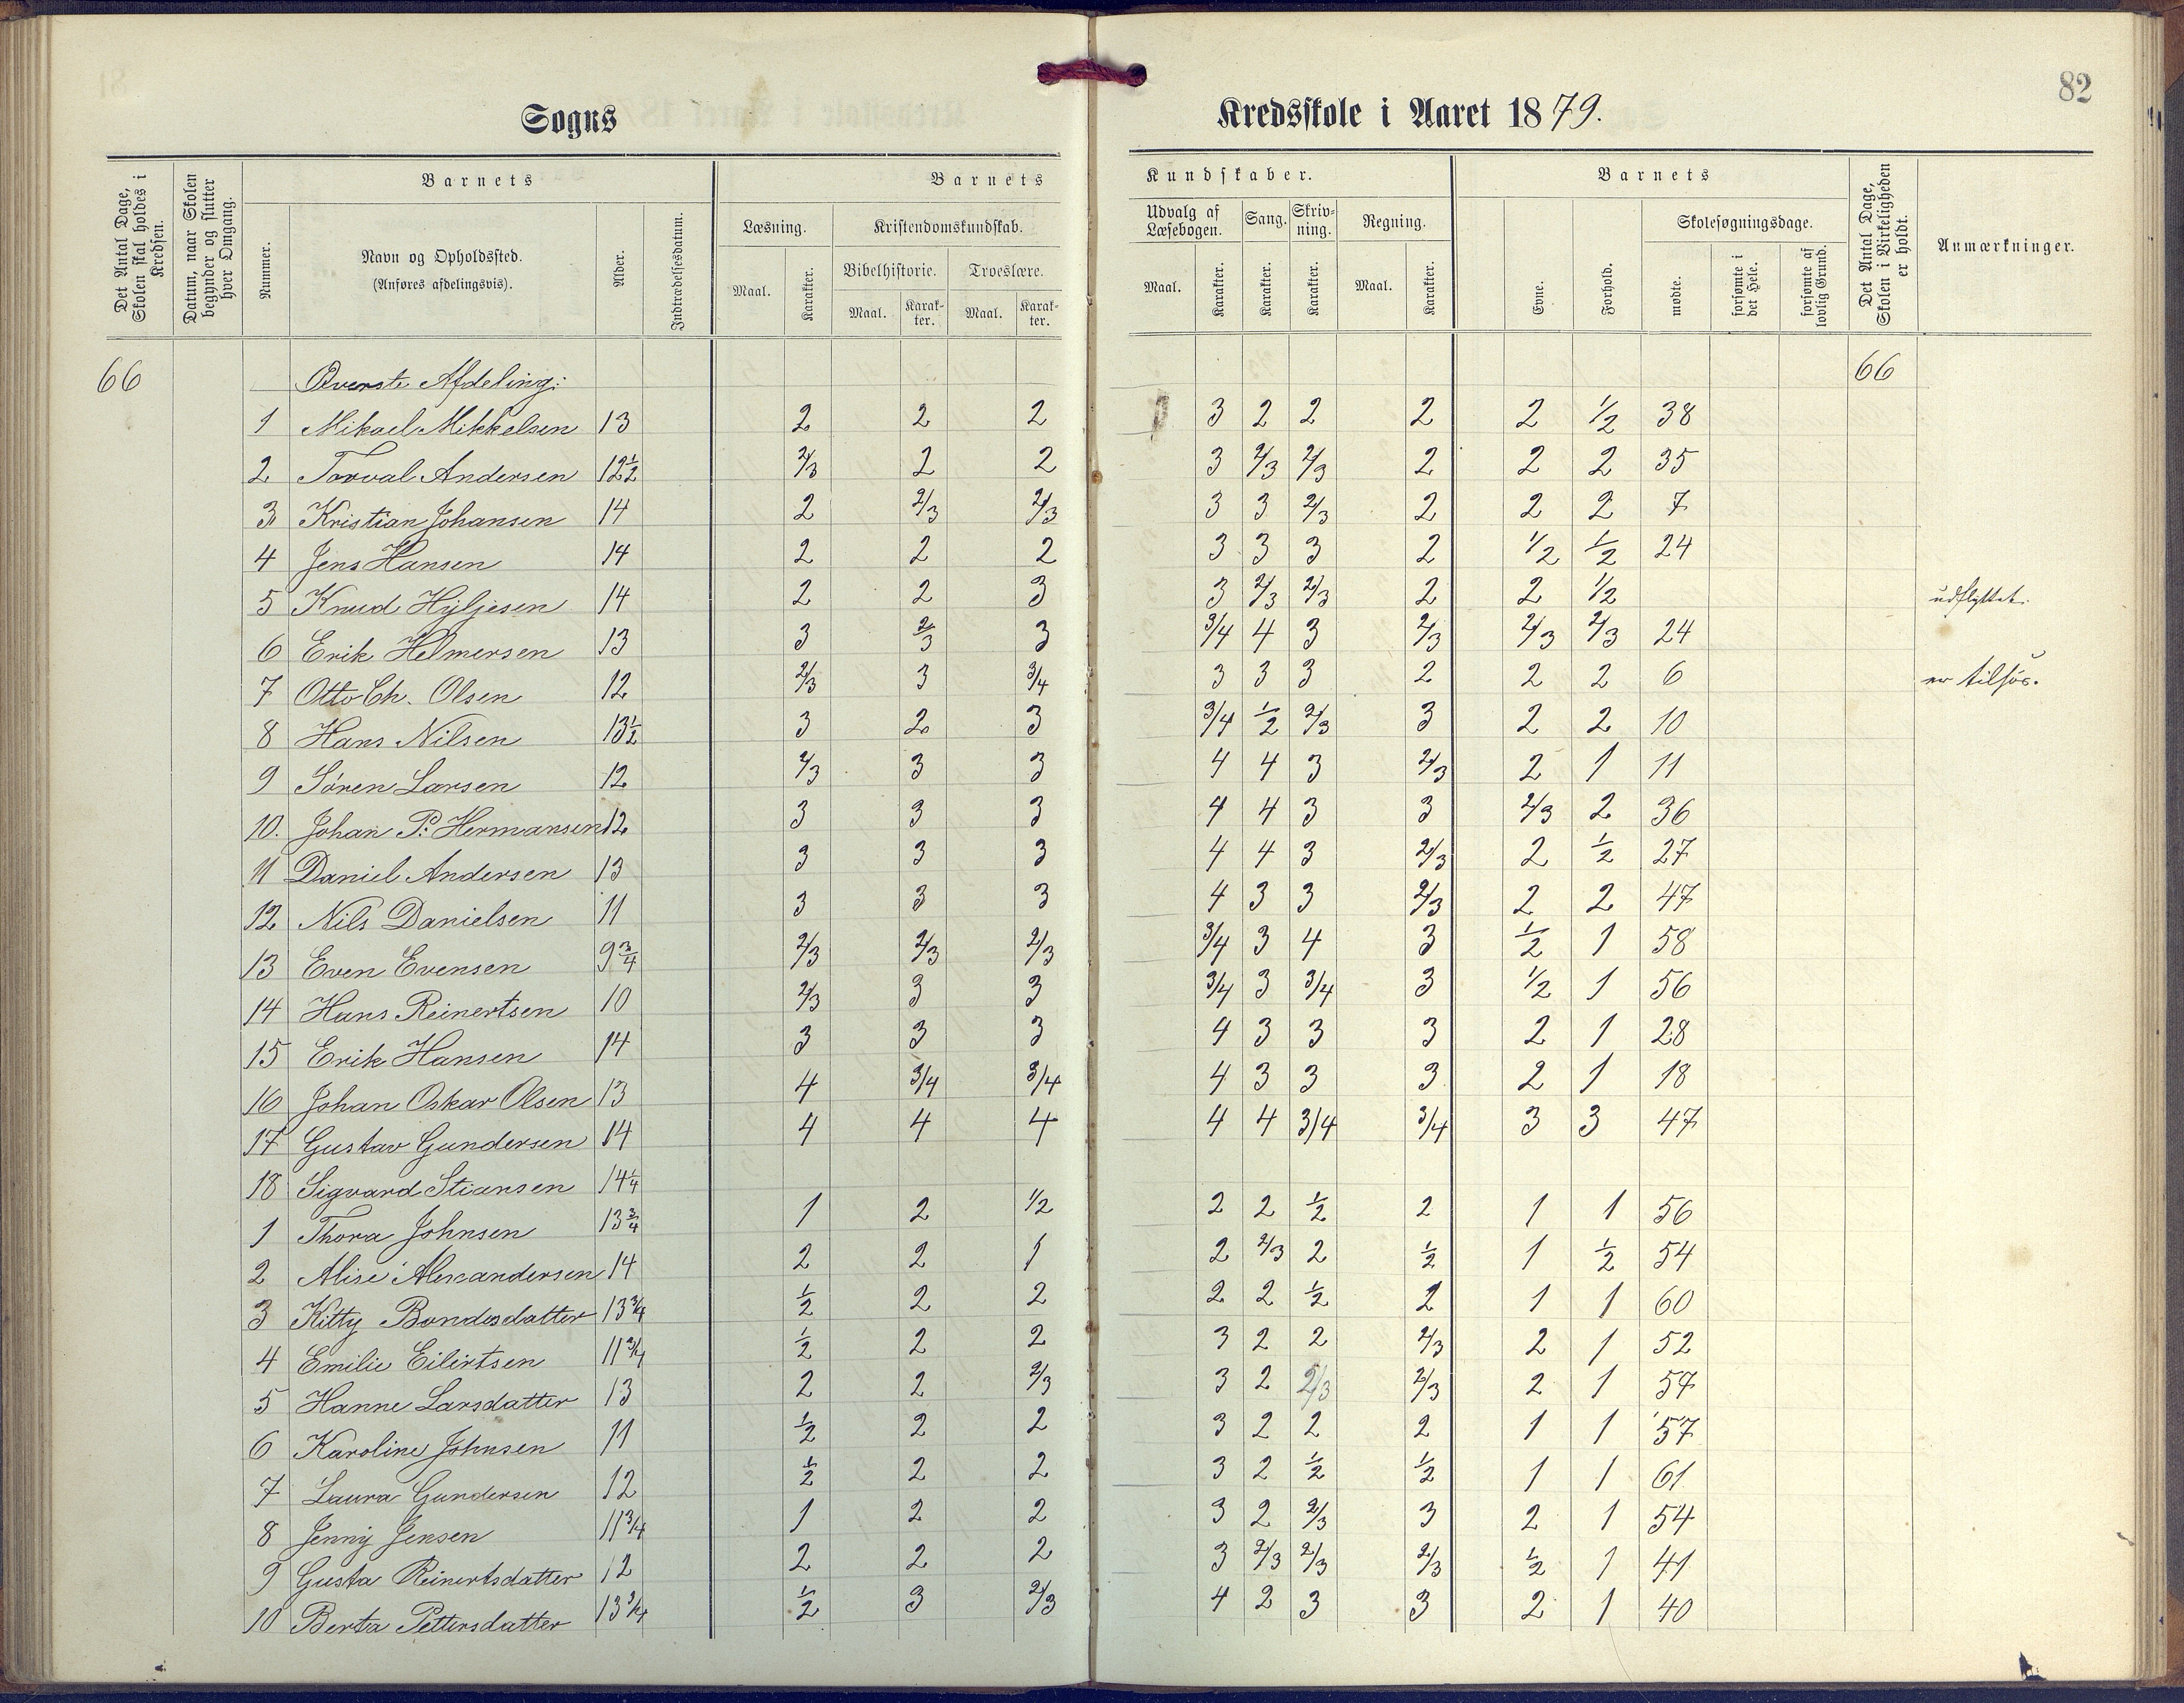 82
Sogns Kredsskole i Aaret 1879.
Det Antal Dage, Skolen skal holdes i Kredsen.
Datum, naar Skolen begynder og slutter hver Omgang.
Barnets
Nummer.
Navn og Opholdssted.
(Anføres afdelingsvis).
Alder.
Indtrædelsesdatum.
Barnets Kundskaber.
Læsning.
Maal. Karakter.
Kristendomskundskab.
Bibelhistorie. Troeslære.
Maal. Karakter. Maal. Karakter.
Udvalg af Læsebogen. Sang. Skrivning. Regning.
Maal. Karakter. Karakter. Karakter. Maal. Karakter.
Barnets
Evne. Forhold.
Skolesøgningsdage.
mødte. forsømte i det Hele. forsømte af lovlig Grund.
Det Antal Dage, Skolen i Virkeligheden er holdt.
Anmærkninger.
66 Øverste Afdeling: 66
1 Mikael Mikkelsen 13 2 2 2 3 2 2 2 2 1/2 38
2 Torval Andersen 12 1/2 2/3 2 2 3 2/3 2/3 2 2 2 35
3 Kristian Johansen 14 2 2/3 2/3 3 3 2/3 2 2 2 7
4 Jens Hansen 14 2 2 2 3 3 3 2 1/2 1/2 24
5 Knud Hyljesen 14 2 2 3 3 2/3 2/3 2 2 1/2 udflyttet.
6 Erik Helmersen 13 3 2/3 3 3/4 4 3 2/3 2/3 2/3 24
7 Otto Ch. Olsen 12 2/3 3 3/4 3 3 3 2 2 2 6 er tilsøs.
8 Hans Nilsen 13 1/2 3 2 3 3/4 1/2 2/3 3 2 2 10
9 Søren Larsen 12 2/3 3 3 4 4 3 2/3 2 1 11
10. Johan P. Hermansen 12 3 3 3 4 4 3 3 2/3 2 36
11 Daniel Andersen 13 3 3 3 4 4 3 2/3 2 1/2 27
12 Nils Danielsen 11 3 3 3 4 3 3 2/3 2 2 47
13 Even Evensen 9 3/4 2/3 2/3 2/3 3/4 3 4 3 1/2 1 58
14 Hans Reinertsen 10 2/3 3 3 3/4 3 3/4 3 1/2 1 56
15 Erik Hansen 14 3 3 3 4 3 3 3 2 1 28
16 Johan Oskar Olsen 13 4 3/4 3/4 4 3 3 3 2 1 18
17 Gustav Gundersen 14 4 4 4 4 4 3/4 3/4 3 3 47
18 Sigvard Stiansen 14 1/4
1 Thora Johnsen 13 3/4 1 2 1/2 2 2 1/2 2 1 1 56
2 Alise Alexandersen 14 2 2 1 2 2/3 2 1/2 1 1/2 54
3 Kitty Bondesdatter 13 3/4 1/2 2 2 2 2 1/2 2 1 1 60
4 Emilie Eilertsen 11 3/4 1/2 2 2 3 2 2 2/3 2 1 52
5 Hanne Larsdatter 13 2 2 2/3 3 2 2/3 2/3 2 1 57
6 Karoline Johnsen 11 1/2 2 2 3 2 2 2 1 1 57
7 Laura Gundersen 12 1/2 2 2 3 2 1/2 1/2 1 1 61
8 Jenny Jensen 11 3/4 1 2 2 3 2 2/3 3 2 1 54
9 Gusta Reinertsdatter 12 2 2 2 3 2/3 2/3 2/3 1/2 1 41
10 Berta Pettersdatter 13 3/4 1/2 3 2/3 4 2 3 3 2 1 40